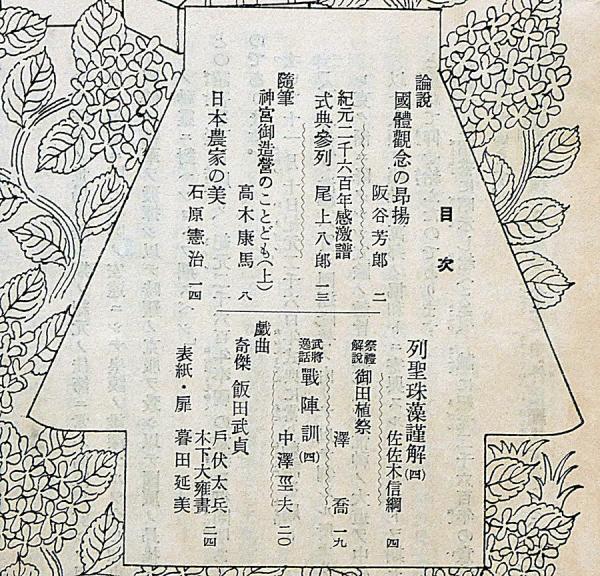 目次
論説
國體觀念の昂揚
阪谷芳郎 二
紀元二千六百年感激譜
式典參列 尾上八郎 一三
隨筆
神宮御造營のことども(上)
高木康馬 八
日本農家の美
石原憲治 一四
列聖珠藻謹解(四)
佐佐木信綱 四
祭禮解説 御田植祭
澤 喬 一九
武將逸話 戰陣訓(四)
中澤巠夫 二〇
戯曲
奇傑 飯田武貞
戶伏太兵
木下大雍畫 二四
表紙・扉 暮田延美